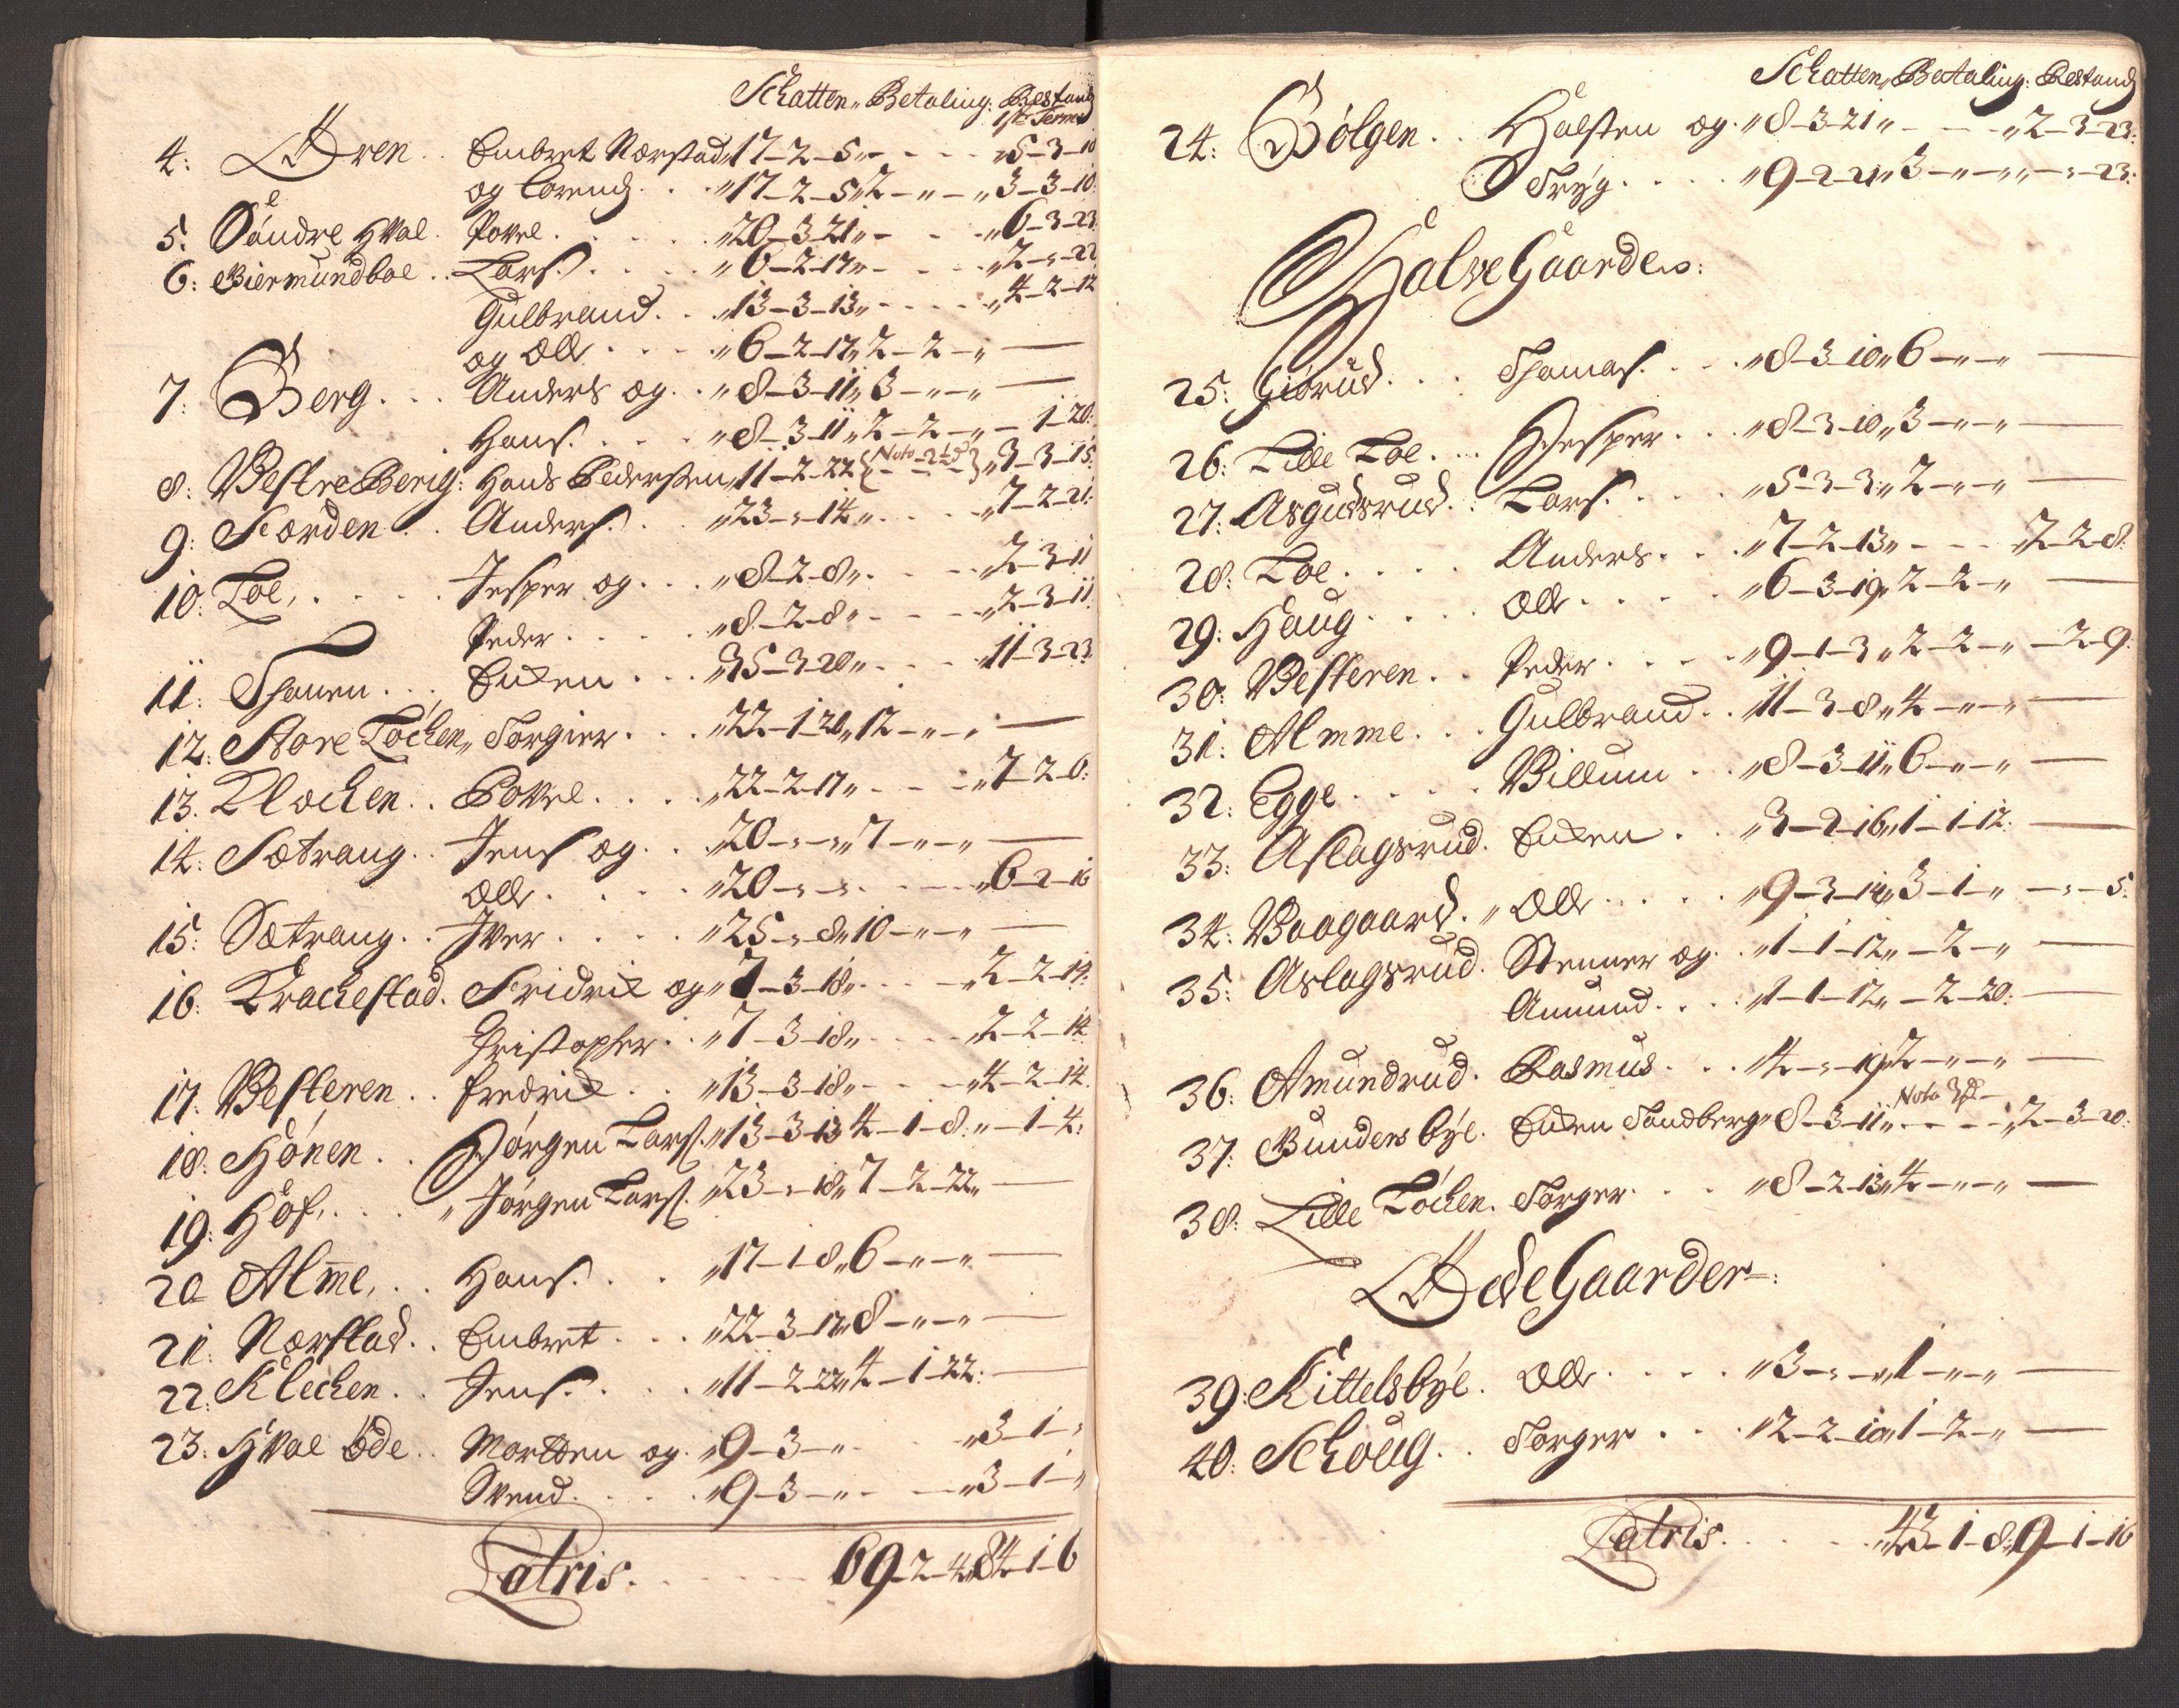 Schatten„ Betaling: Restand
1ste Termin
4: Øren . . Embret Nerstad „17-2-5„ - - - „5-3-10
og Lorends . . . „17-2-5„2-„-„3-3-10:
5: Søndre Hval . Povel . . . . „20-3-21„- - - „6-3-23
6: Biermundboe . . Lars . . . . „6-2-17„- - - „2-„-22
Gulbrand . . „13-3-13„- - - - „4-2-12
og Olle . . . . „6-2-17„2-2-„ —
7: Berg . . . Anders og . . „8-3-11„3-„-„ —
Hans . . . . „8-3-11„2-2-„-1-20:
8: Vestre Berig: Hans Pedersen„11-2-22{Noto-2 td}„3-3-15:
9: Færden . . Anders . . „23-„-14„- - - „7-2-21:
10: Loe, . . . . Jesper og . . . „8-2-8„- - - „2-3-11
Peder . . . . „8-2-8„- - - „2-3-11
11: Thanen . . . Enken . . . „35-3-20„- - - 11-3-23
12: Store Løchen„ Torgier . . . „22-1-20„12-„-„ —
13: Klochen . . Povel . . . . „22-2-17„- - - „7-2-0:
14: Sætrang . . Jens og . . „20-„-„„7-„-„ —
Olle . . . . „20-„-„- - - „6-2-16
15: Sætrang . . Iver . . . . „25-„-8„10-„-„ —
16: Krachestad . Fridrik og „7-3-18„- - - „2-2-14:
Christopher . . „7-3-18„- - - „2-2-14
17: Vesteren . . fredrik . . „13-3-18„- - - „4-2-14
18: Hønen . . Jørgen Lars. „13-3-13 4-1-8:„-1-4:
19: Hof, . . . „ Jørgen Lars. „23-„-18„7-2-22„ —
20 Alm̄e, . . Hans . . „17-1-8„6-„-„ —
21: Nerstad . . Embret . . . „22-3-17„8-„-„ —
22: Klechen . . Jens . . . . „11-2-22„4-1-22: —
23: Hval øde . . Morten og . „9-3-„- - - „3-1-„
Svend . . . . „9-3-„- - - „3-1-„
Latris . . . . 69-2-4„84-1-6
Schatten„ Betaling: Restand
24: Bølgen . . Halsten og . „8-3-21„- - - „2-3-23:
Tryg . . . . „9-2-21„3-„-„„-„-23:
Halve Gaarder:
25: Giørud . . . Thomas . . . „8-3-10„6-„-„ —
26: Lille Loe . . . Jesper . . . „8-3-10„3-„-„ —
27: Asgudsrud . . Lars . . . „5-3-3„2-„-„ —
28: Loe . . . . Anders . . . „7-2-13„- - - 2-2-8:
29: Haug . . . . Olle . . . . „6-3-19„2-2-„ —
30: Vesteren . . Peder . . . . „9-1-3„2-2-„ -2-9:
31: Almme . . . Gulbrand . . 11-3-8„4-„-„ —
32: Egge . . . . Villum . . „8-3-11„6-„-„ —
33: Aslagsrud . Enken . . „3-2-16„1-1-12: —
34: Baagaard . „ Olle . . . . „9-3-14„3-1-„ -„-5:
35: Aslagsrud . Stenner og . „1-1-12„-2-„ —
Amund . . . „1-1-12„-2-20: —
36: Amundrud . Rasmus . . . „4-„-19„2-„-„ —
Noto 3 d
37: Bundersbÿe . Enken Sandberg„8-3-11„- - - „2-3-20:
38: Lille Løchen . Torger . . . „8-2-13„4-„-„ —
Øede Gaarder:
39: Kittelsbÿe . Olle . . . . „3-„-„„1-„-„ —
40: Schoug . . Torger . . . „2-2-10„1-2-„ —
Latris . . . . „43-1-8„9-1-16